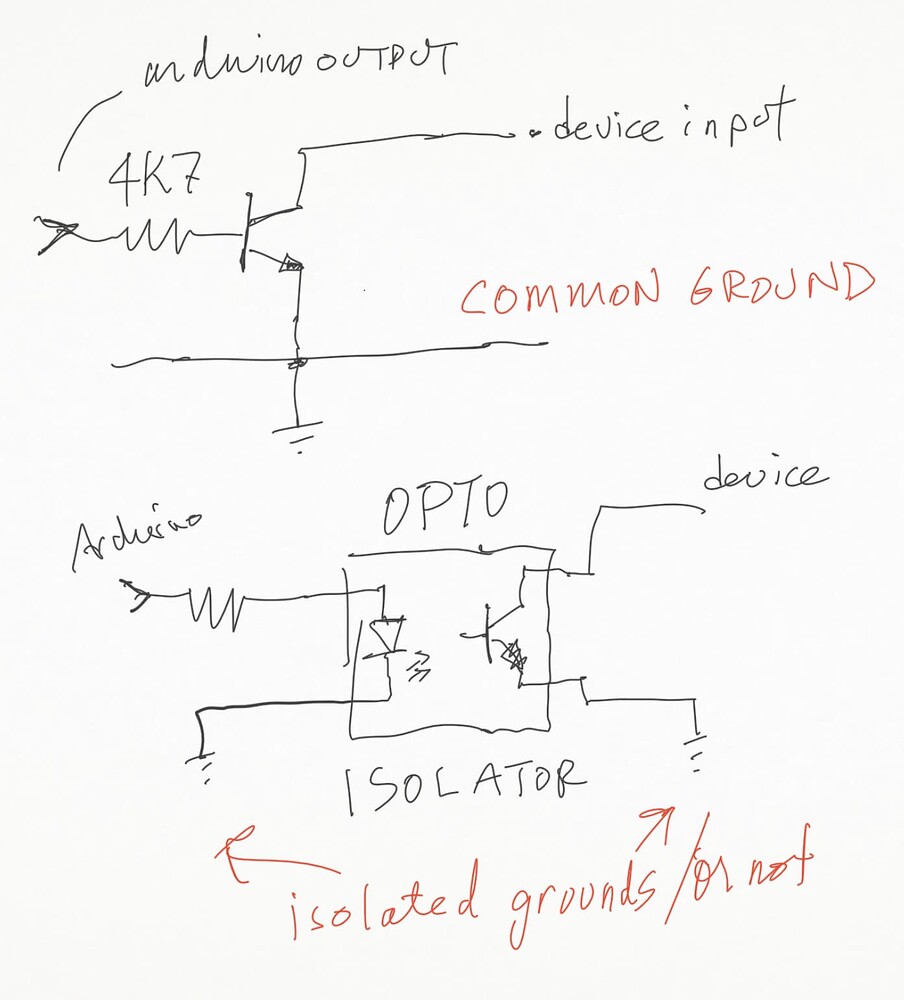 arduino OUTPUT
device input
4K7
COMMON GROUND
device
OPTO
Arduino
ISOLATOR
isolated grounds/or not